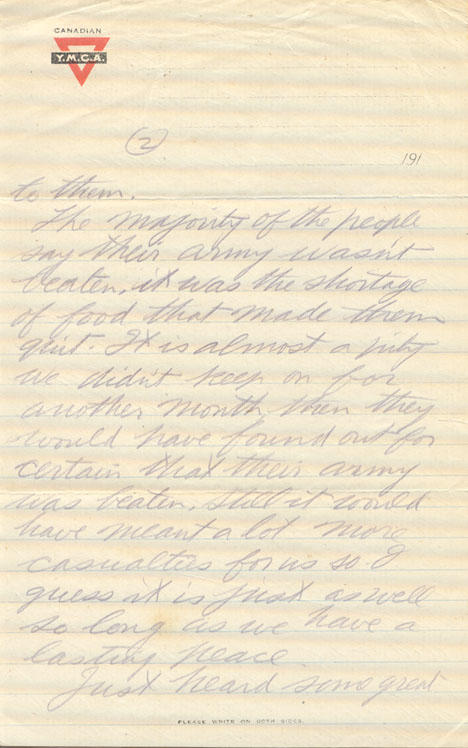 CANADIAN
Y.M.C.A.
(2)
191
to them.
The majority of the people
say their army wasn't
beaten, it was the shortage
of food that made them
quit. It is almost a pity
we didn't keep on for
another month then they
would have found out for
certain that their army
was beaten. Still it would
have meant a lot more
casualties for us so I
guess it is just as well
so long as we have a
lasting peace
Just heard some great
PLEASE WRITE ON BOTH SIDES.